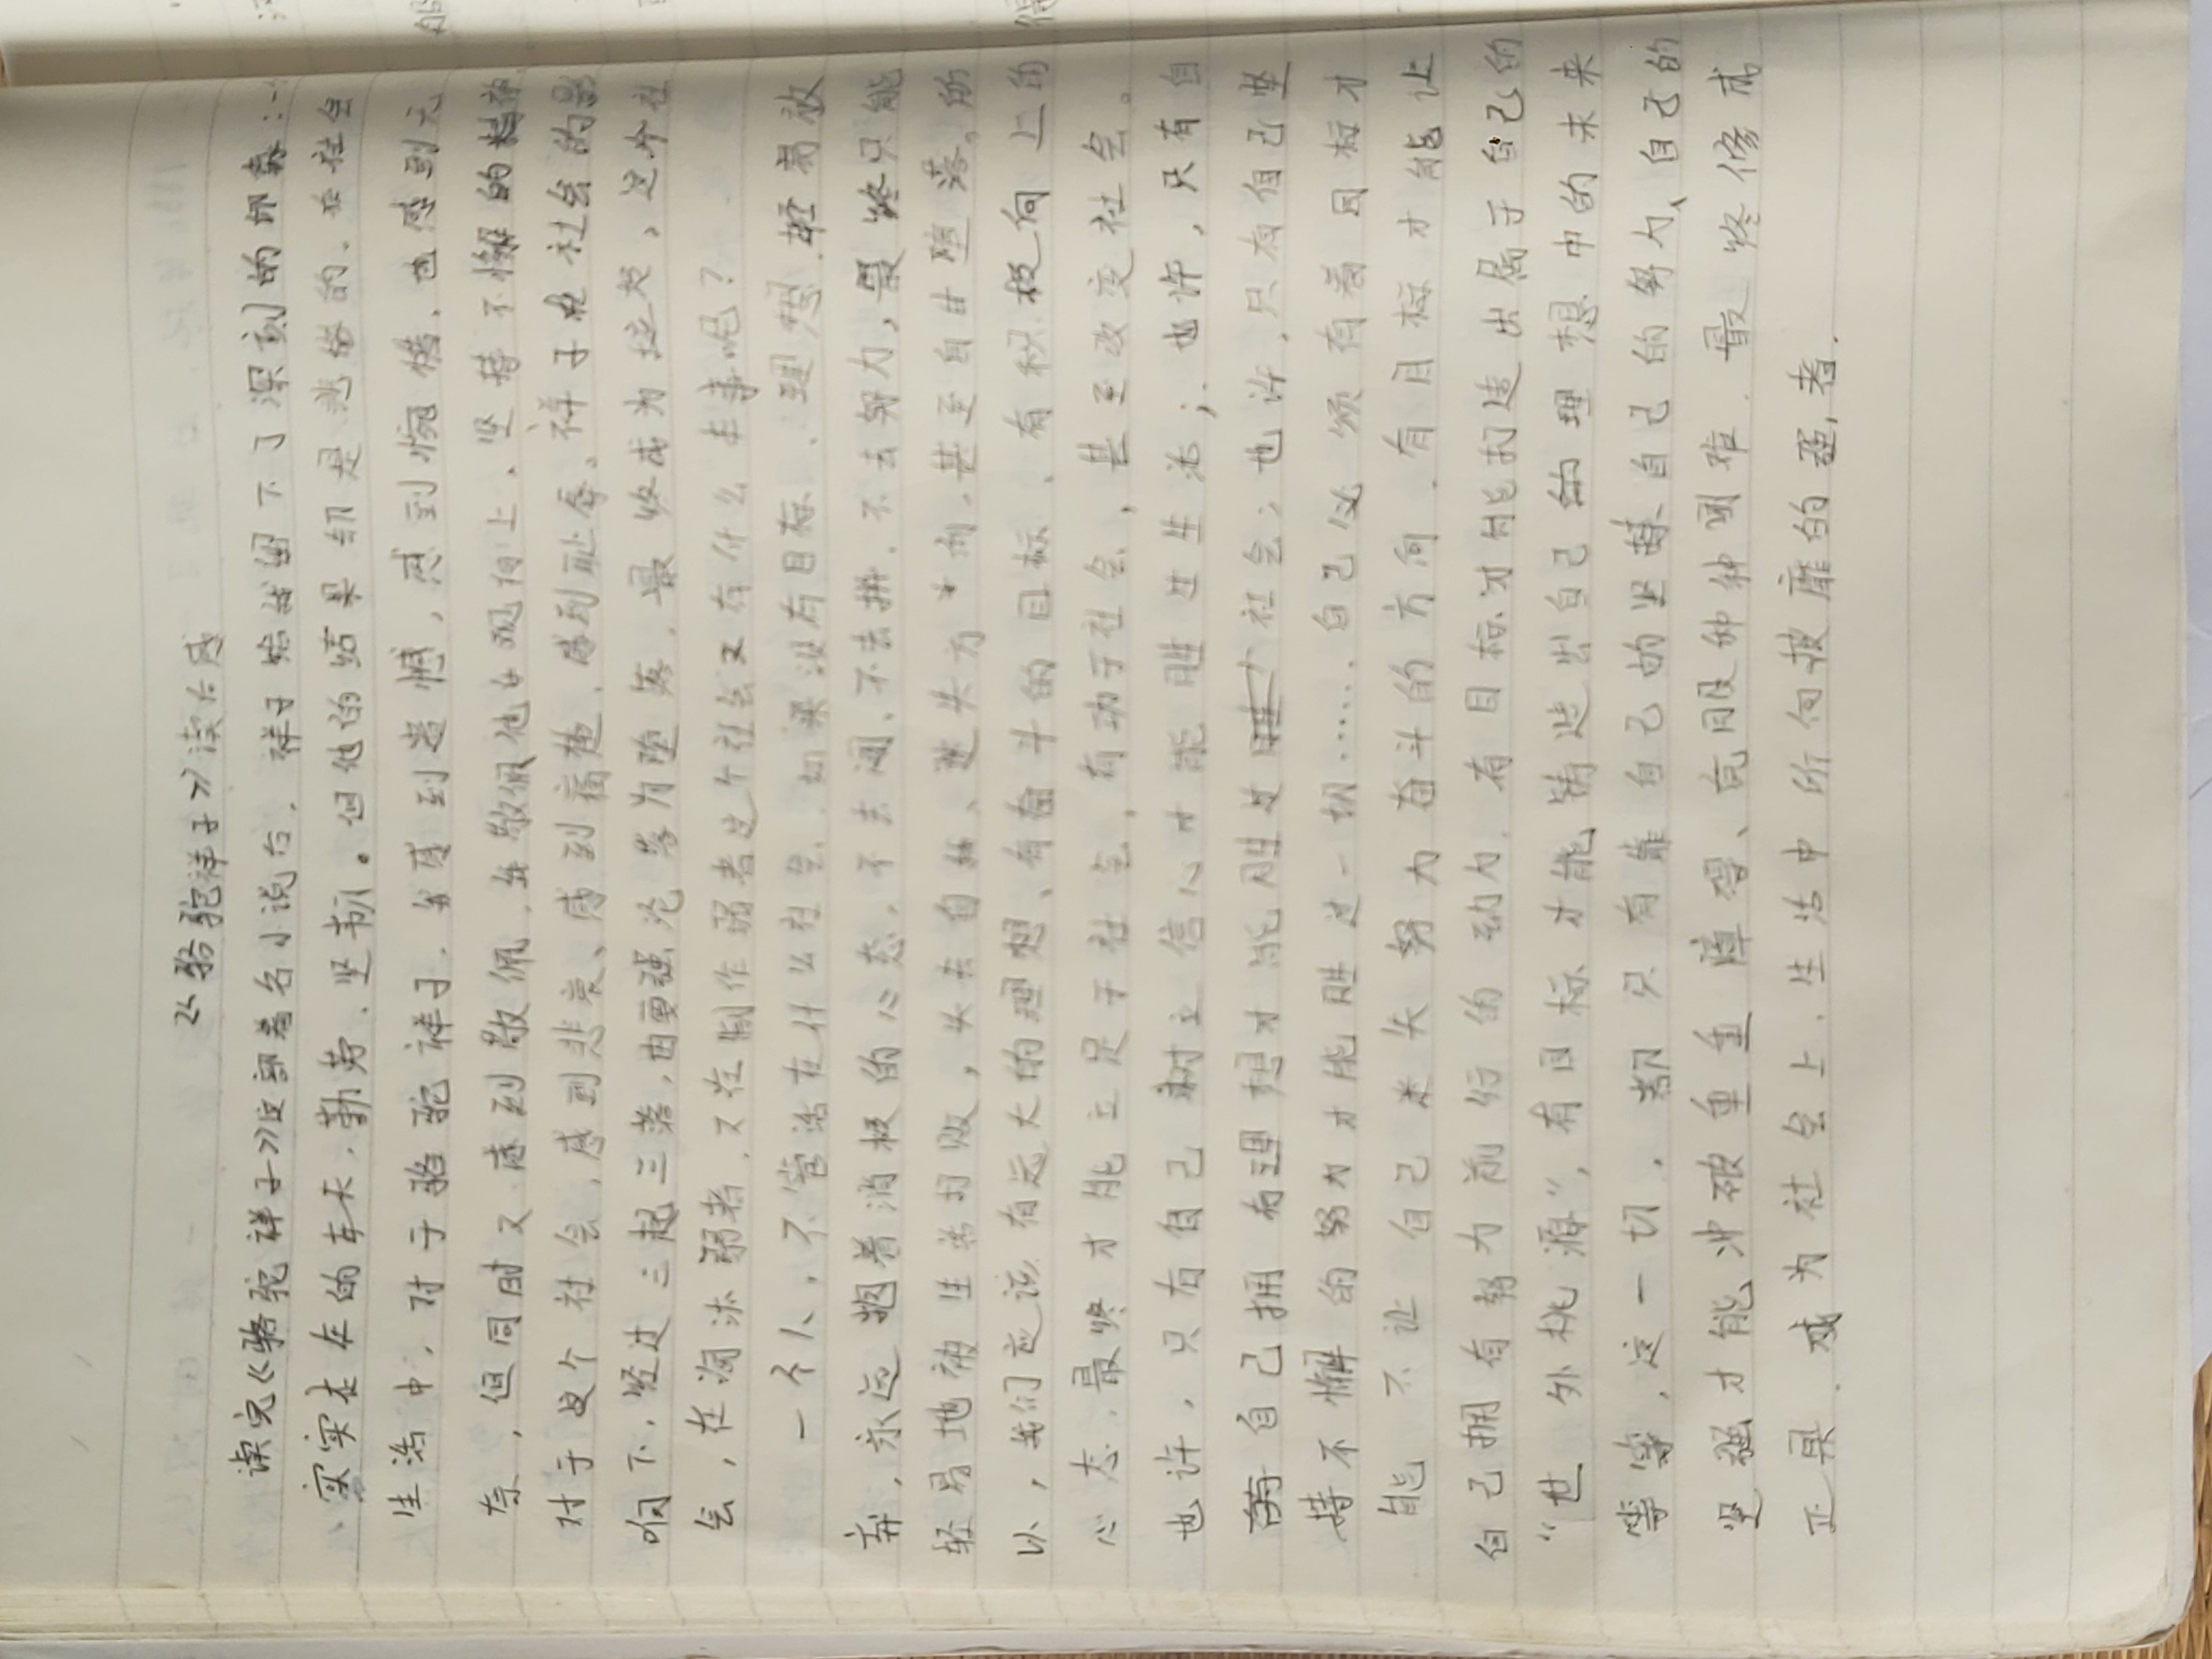 《骆驼祥子》读后感
读完《骆驼祥子》这部著名小说后，祥子给我留下了深刻的印象：一
实实在在的车夫，勤劳、坚韧。但他的结果却是悲惨的，在社会
生活中，对于骆驼祥子，我感到遗憾，感到惋惜、也感到无
奈，但同时又感到敬佩，我敬佩他乐观向上、坚持不懈的精神
对于这个社会，感到悲哀、感到痛楚，感到耻辱。祥子在社会的影
响下，经过三起三落，由要强沦落为堕落，最终成为垃圾，这个社
会，在淘汰弱者，又在制作弱者这个社会又有什么本事呢？
一个人，不管活在什么社会，如果没有目标、理想，轻易放
弃，永远抱着消极的心态，不去闯、不去拼，不去努力，最终只能
轻易地被生活打败，失去自我、迷失方向，甚至自甘堕落。所
以，我们应该有远大的理想、有奋斗的目标，有积极向上的
心态，最终才能立足于社会，有功于社会，甚至改变社会。
也许，只有自己树立信心才能胜过生活；也许，只有自
自己拥有理想才能胜过社会；也许，只有自己坚
持不懈的努力才能胜过一切……，自己必须有着目标才
能不让自己迷失努力奋斗的方向，有目标才能让
自己拥有努力前行的动力，有目标才有能打造出属于自己的
“世外桃源”，有目标才能铸造出自己的理想中的未来
等等，这一切，都只有靠自己的坚持自己的努力、自己的
坚强才能冲破重重障碍、克服种种困难，最终修成
正果，成为社会上，生活中所向披靡的强者。